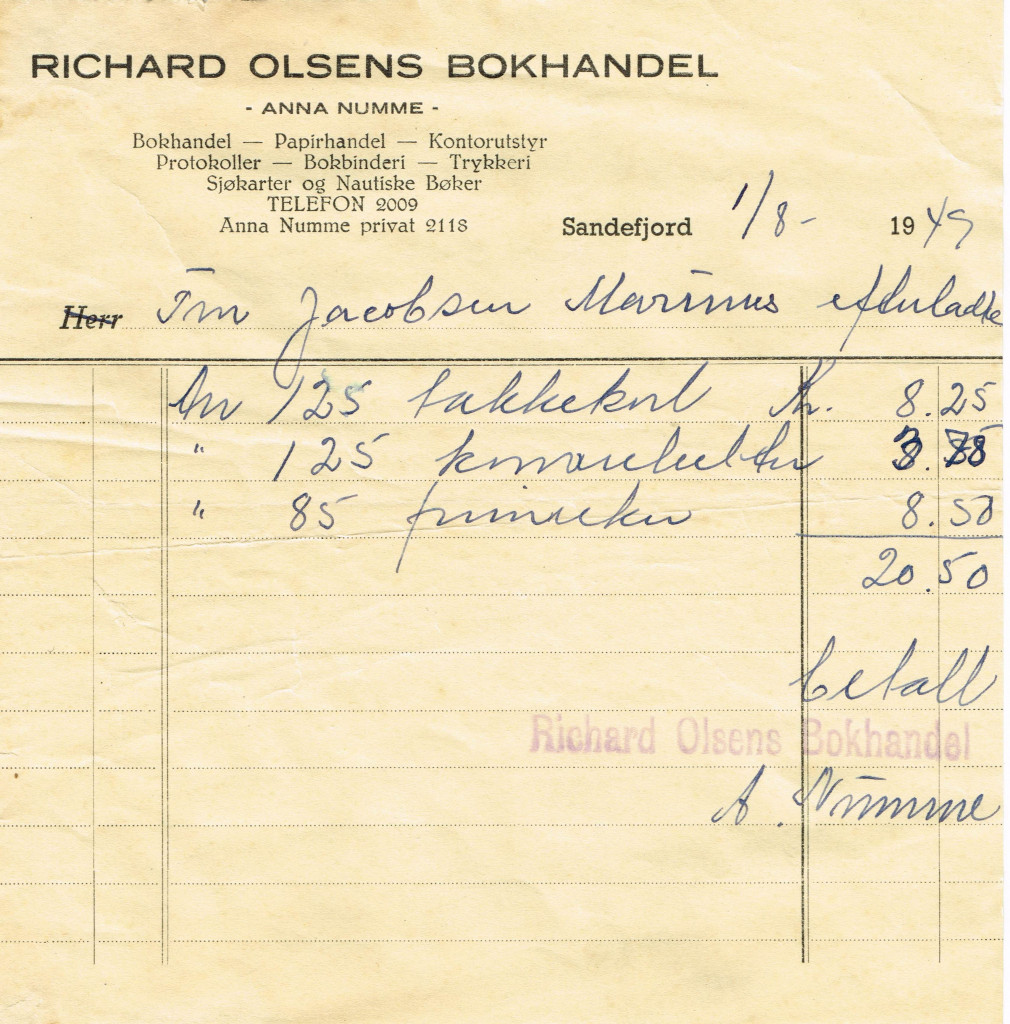 RICHARD OLSENS BOKHANDEL
- ANNA NUMME -
Bokhandel — Papirhandel — Kontorutstyr
Protokoller — Bokbinderi — Trykkeri
Sjøkarter og Nautiske Bøker
TELEFON 2009
Anna Numme privat 2118
Sandefjord 1/8- 1949
Herr Fru Jacobsen Marinus efterladte
An 125 takkekort Kr. 8.25
" 125 konvolutter 3.75
" 85 frimerker 8.50
20.50
betalt
Richard Olsens Bokhandel
A. Numme